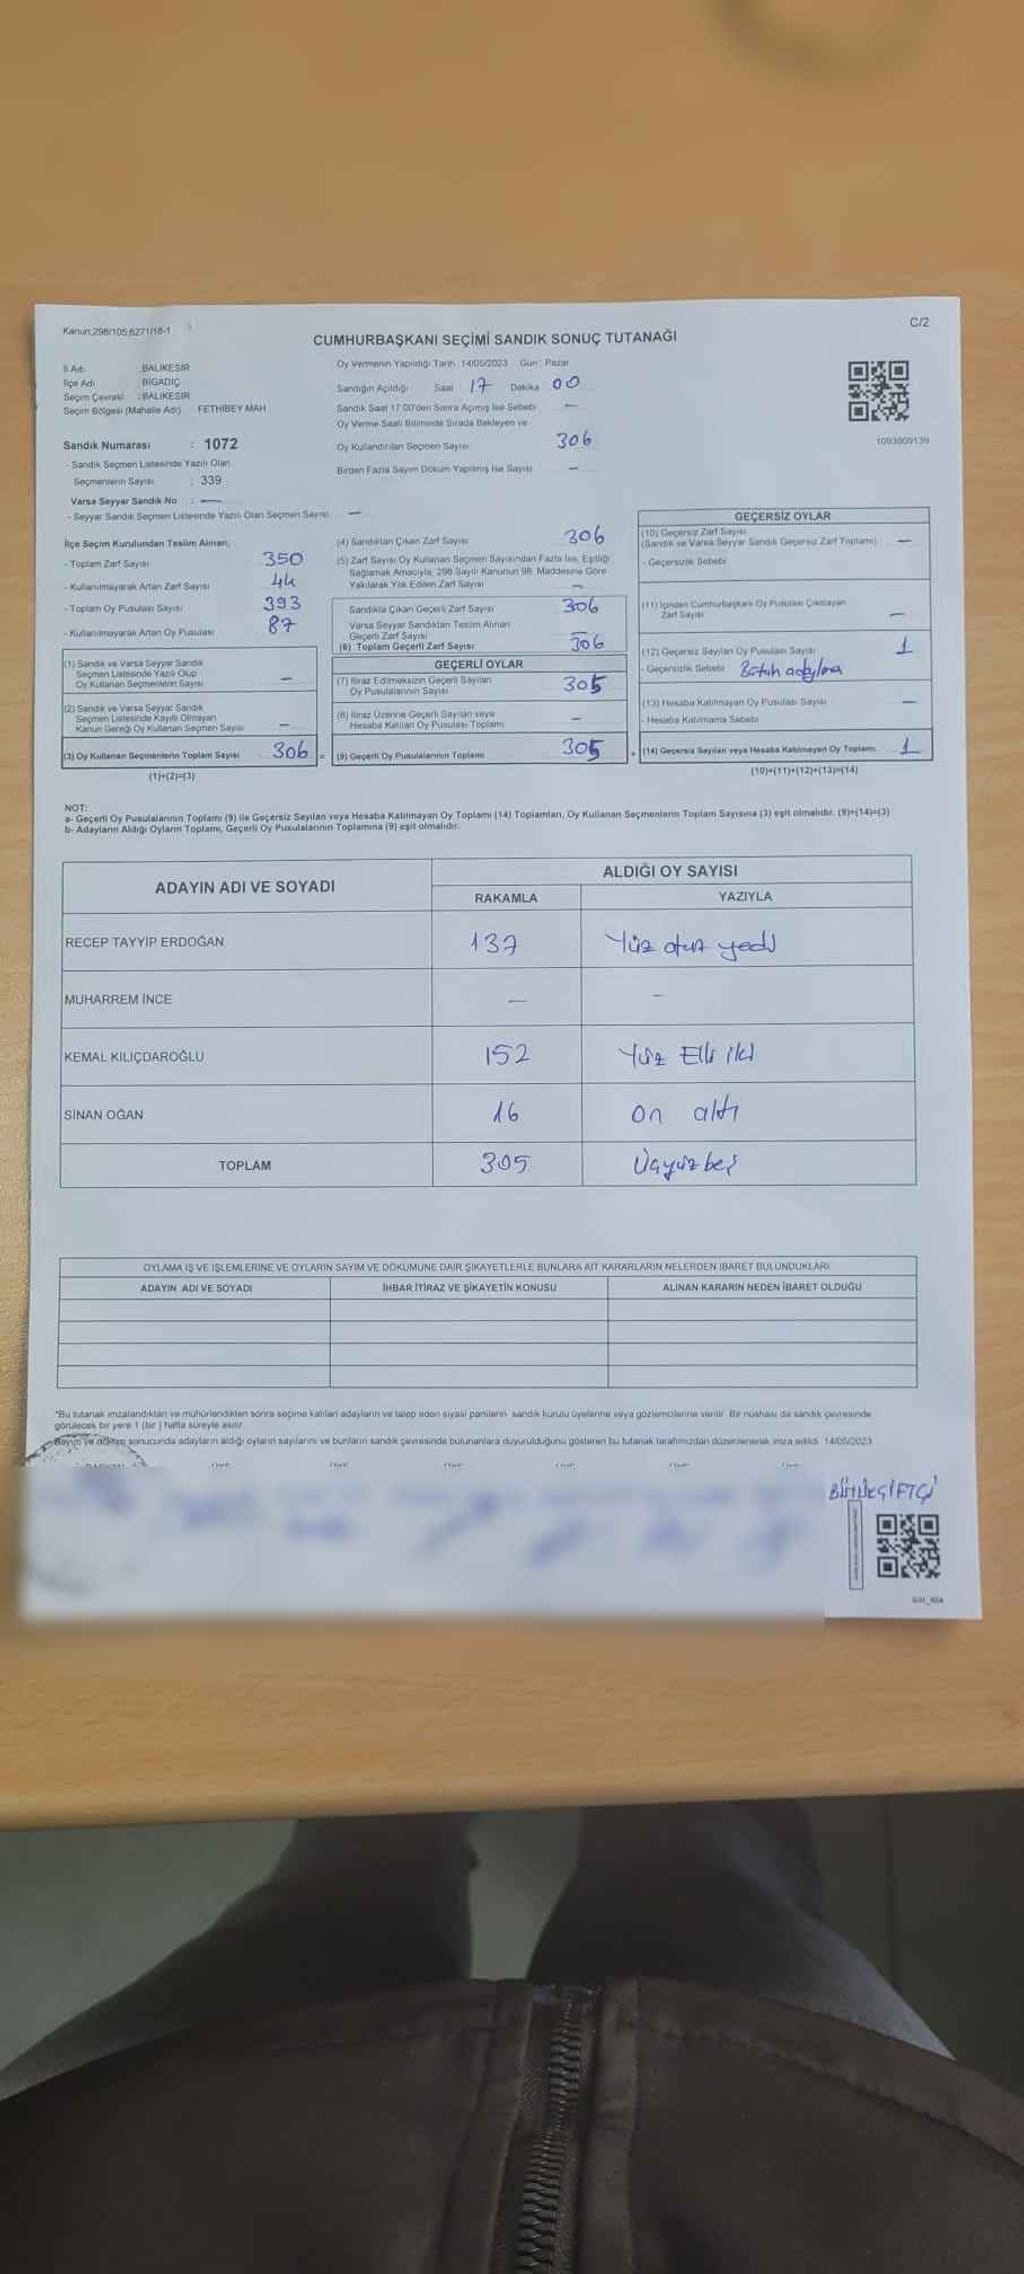 Kanun:298/105,6271/16-1
C/2
CUMHURBAŞKANI SEÇİMİ SANDIK SONUÇ TUTANAĞI
İl Adı : BALIKESİR
İlçe Adı : BİGADİÇ
Seçim Çevresi : BALIKESİR
Seçim Bölgesi (Mahalle Adı) : FETHİBEY MAH
Sandık Numarası : 1072
- Sandık Seçmen Listesinde Yazılı Olan
Seçmenlerin Sayısı : 339
Varsa Seyyar Sandık No : —
- Seyyar Sandık Seçmen Listesinde Yazılı Olan Seçmen Sayısı —
Oy Vermenin Yapıldığı Tarih : 14/05/2023 Gün : Pazar
Sandığın Açıldığı Saat 17 Dakika 00
Sandık Saat 17:00'den Sonra Açılmış İse Sebebi —
Oy Verme Saati Bitiminde Sırada Bekleyen ve
Oy Kullandırılan Seçmen Sayısı 306
Birden Fazla Sayım Döküm Yapılmış İse Sayısı —
1003809139
İlçe Seçim Kurulundan Teslim Alınan;
- Toplam Zarf Sayısı 350
- Kullanılmayarak Artan Zarf Sayısı 44
- Toplam Oy Pusulası Sayısı 393
- Kullanılmayarak Artan Oy Pusulası 87
(1) Sandık ve Varsa Seyyar Sandık
Seçmen Listesinde Yazılı Olup
Oy Kullanan Seçmenlerin Sayısı —
(2) Sandık ve Varsa Seyyar Sandık
Seçmen Listesinde Kayıtlı Olmayan
Kanun Gereği Oy Kullanan Seçmen Sayısı —
(3) Oy Kullanan Seçmenlerin Toplam Sayısı 306 =
(1)+(2)=(3)
(4) Sandıktan Çıkan Zarf Sayısı 306
(5) Zarf Sayısı Oy Kullanan Seçmen Sayısından Fazla İse, Eşitliği
Sağlamak Amacıyla; 298 Sayılı Kanunun 98. Maddesine Göre
Yakılarak Yok Edilen Zarf Sayısı —
Sandıkta Çıkan Geçerli Zarf Sayısı 306
Varsa Seyyar Sandıktan Teslim Alınan
Geçerli Zarf Sayısı —
(6) Toplam Geçerli Zarf Sayısı 306
GEÇERLİ OYLAR
(7) İtiraz Edilmeksizin Geçerli Sayılan
Oy Pusulalarının Sayısı 305
(8) İtiraz Üzerine Geçerli Sayılan veya
Hesaba Katılan Oy Pusulası Toplamı —
(9) Geçerli Oy Pusulalarının Toplamı 305 +
GEÇERSİZ OYLAR
(10) Geçersiz Zarf Sayısı
(Sandık ve Varsa Seyyar Sandık Geçersiz Zarf Toplamı) —
- Geçersizlik Sebebi
(11) İçinden Cumhurbaşkanı Oy Pusulası Çıkmayan
Zarf Sayısı —
(12) Geçersiz Sayılan Oy Pusulası Sayısı 1
- Geçersizlik Sebebi
(13) Hesaba Katılmayan Oy Pusulası Sayısı —
- Hesaba Katılmama Sebebi
(14) Geçersiz Sayılan veya Hesaba Katılmayan Oy Toplamı 1
(10)+(11)+(12)+(13)=(14)
NOT:
a- Geçerli Oy Pusulalarının Toplamı (9) ile Geçersiz Sayılan veya Hesaba Katılmayan Oy Toplamı (14) Toplamları, Oy Kullanan Seçmenlerin Toplam Sayısına (3) eşit olmalıdır. (9)+(14)=(3)
b- Adayların Aldığı Oyların Toplamı, Geçerli Oy Pusulalarının Toplamına (9) eşit olmalıdır.
ADAYIN ADI VE SOYADI ALDIĞI OY SAYISI
RAKAMLA YAZIYLA
RECEP TAYYİP ERDOĞAN 137 Yüz otuz yedi
MUHARREM İNCE — —
KEMAL KILIÇDAROĞLU 152 Yüz Elli iki
SİNAN OĞAN 16 on altı
TOPLAM 305 Üçyüzbeş
OYLAMA İŞ VE İŞLEMLERİNE VE OYLARIN SAYIM VE DÖKÜMÜNE DAİR ŞİKAYETLERLE BUNLARA AİT KARARLARIN NELERDEN İBARET BULUNDUKLARI
ADAYIN ADI VE SOYADI İHBAR İTİRAZ VE ŞİKAYETİN KONUSU ALINAN KARARIN NEDEN İBARET OLDUĞU
*Bu tutanak imzalandıktan ve mühürlendikten sonra seçime katılan adayların ve talep eden siyasi partilerin sandık kurulu üyelerine veya gözlemcilerine verilir. Bir nüshası da sandık çevresinde
görülecek bir yere 1 (bir) hafta süreyle asılır.
Sayım ve döküm sonucunda adayların aldığı oyların sayılarını ve bunların sandık çevresinde bulunanlara duyurulduğunu gösteren bu tutanak tarafımızdan düzenlenerek imza edildi. 14/05/2023